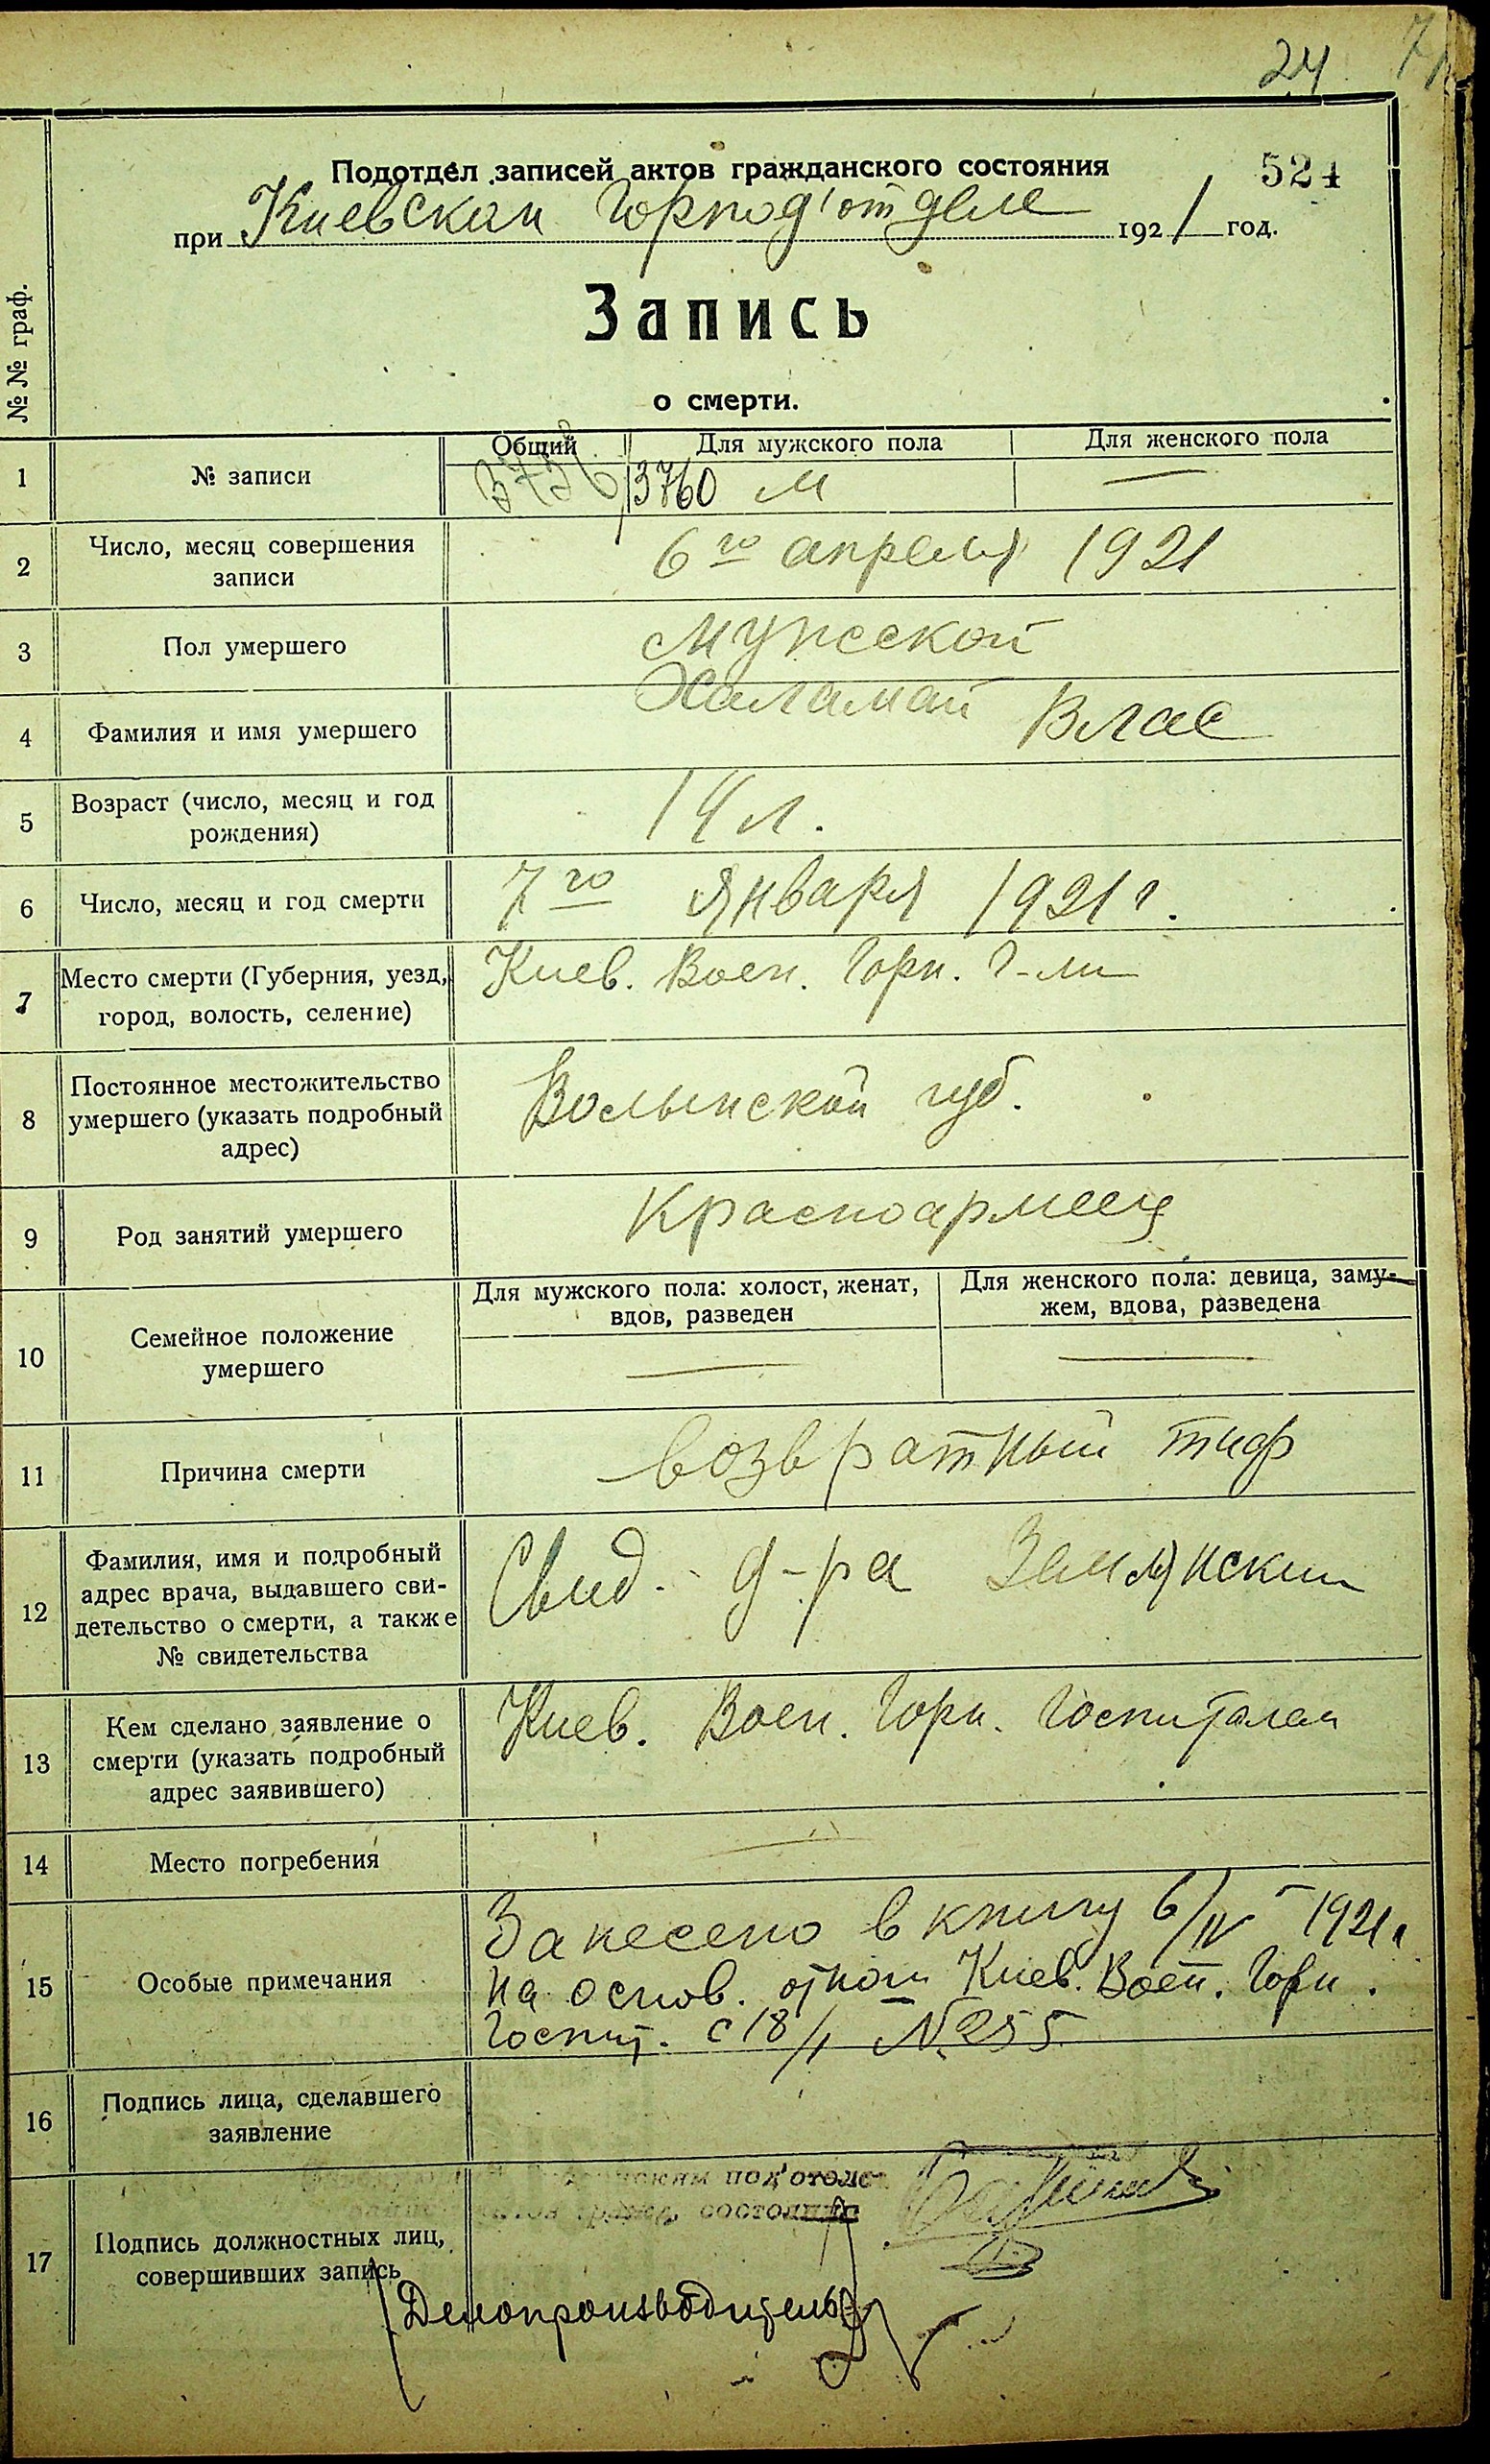 24
Подотдел записей актов гражданского состояния
524
при Киевском Горпод'отделе 1921 год.
Запись
о смерти.
№ № граф.
Общий Для мужского пола Для женского пола
1 № записи 3760 м —
2 Число, месяц совершения записи 6го апреля 1921
3 Пол умершего Мужеской
4 Фамилия и имя умершего Халамай Влас
5 Возраст (число, месяц и год рождения) 19 л.
6 Число, месяц и год смерти 7го Января 1921 г.
7 Место смерти (Губерния, уезд, город, волость, селение) Киев. Воен. Горн. Г-ли
8 Постоянное местожительство умершего (указать подробный адрес) Волынской губ.
9 Род занятий умершего Красноармеец
Для мужского пола: холост, женат, вдов, разведен
Для женского пола: девица, замужем, вдова, разведена
10 Семейное положение умершего — —
11 Причина смерти возвратный тиф
12 Фамилия, имя и подробный адрес врача, выдавшего свидетельство о смерти, а также № свидетельства Свид. д-ра
13 Кем сделано заявление о смерти (указать подробный адрес заявившего) Киев. Воен. Горн. Госпиталем
14 Место погребения —
15 Особые примечания Занесено в книгу 6/IV 1921 г.
на основ. отнош Киев. Воен. Горн.
Госпит. с 18/I № 255
16 Подпись лица, сделавшего заявление
17 Подпись должностных лиц, совершивших запись
под'отделом
состояния
Делопроизводитель